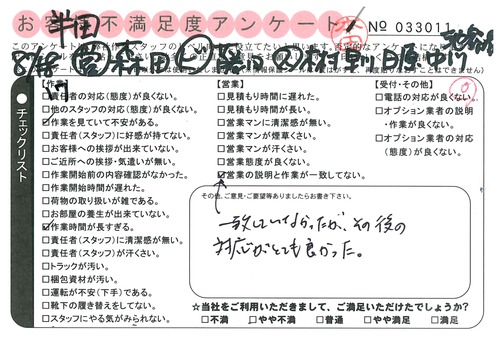 お客様不満足度アンケート
No 033011
半田
8/18
【作業】
□責任者の対応(態度)が良くない。
□他のスタッフの対応(態度)が良くない。
□作業を見ていて不安がある。
□責任者(スタッフ)に好感が持てない。
□お客様への挨拶が出来ていない。
□ご近所への挨拶・気遣いが無い。
□作業開始前の内容確認がなかった。
□作業開始時間が遅れた。
□荷物の取り扱いが雑である。
□お部屋の養生が出来ていない。
☑作業時間が長すぎる。
□責任者(スタッフ)に清潔感が無い。
□責任者(スタッフ)が汗くさい。
□トラックが汚い。
□梱包資材が汚い。
□運転が不安(下手)である。
□靴下の履き替えをしてない。
□スタッフにやる気がみられない。
チェックリスト
【営業】
□見積もり時間に遅れた。
□見積もり時間が長い。
□営業マンに清潔感が無い。
□営業マンが煙草くさい。
□営業マンが汗くさい。
□営業態度が良くない。
☑営業の説明と作業が一致してない。
【受付・その他】
□電話の対応が良くない。
□オプション業者の説明
・作業が良くない。
□オプション業者の対応
(態度)が良くない。
その他、ご意見・ご要望等ありましたらお書き下さい。
一致していなかったが、その後の
対応がとても良かった。
☆当社をご利用いただきまして、ご満足いただけたでしょうか?
□不満 □やや不満 □普通 □やや満足 □満足